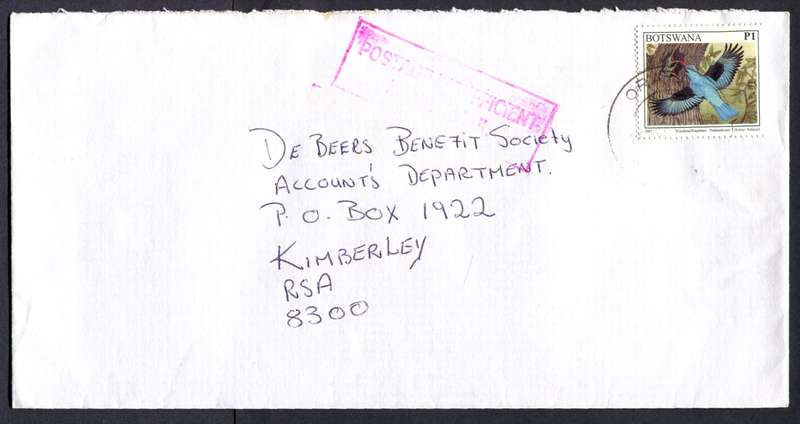 BOTSWANA P1
POSTAGE
De BEERS BENEFIT Society
ACCOUNT'S DEPARTMENT.
P.O. BOX 1922
KIMBERLEY
RSA
8300